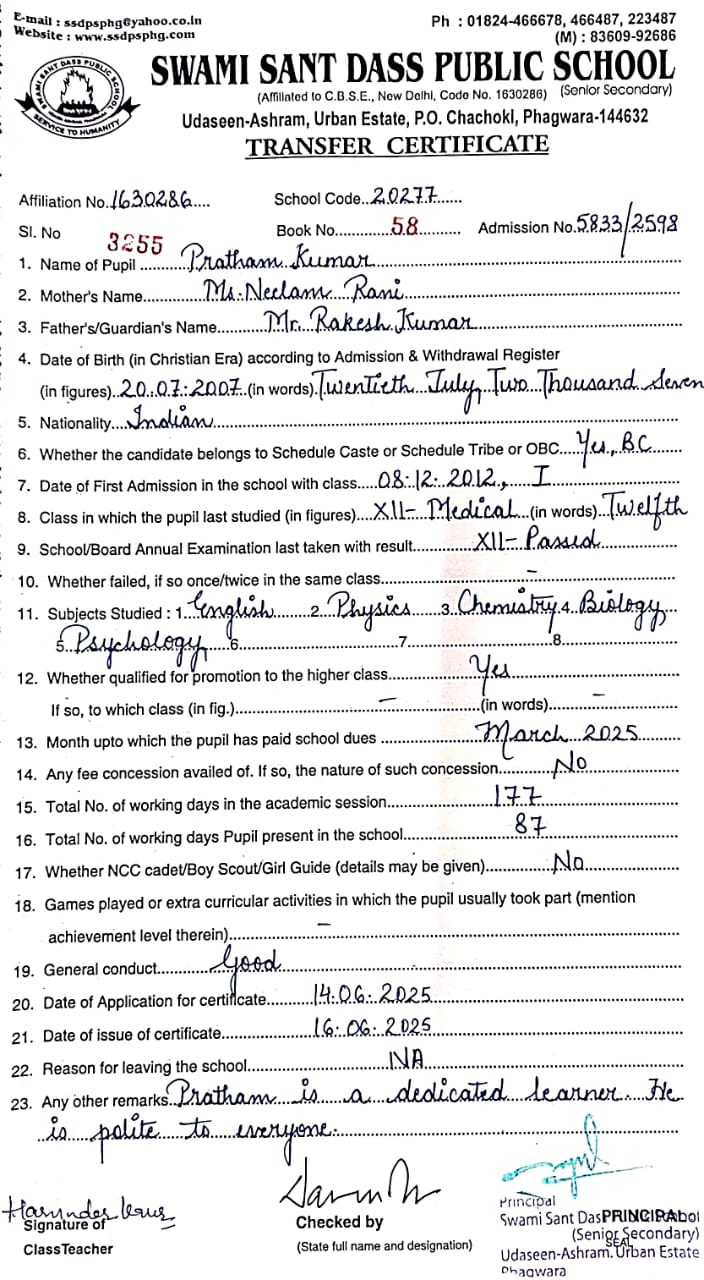 E-mail : ssdpsphg@yahoo.co.in
Ph : 01824-466678, 466487, 223487
Website : www.ssdpsphg.com
(M) : 83609-92686
SWAMI SANT DASS PUBLIC SCHOOL
SERVICE TO HUMANITY
SWAMI SANT DASS PUBLIC SCHOOL
(Affiliated to C.B.S.E., New Delhi, Code No. 1630286) (Senior Secondary)
Udaseen-Ashram, Urban Estate, P.O. Chachoki, Phagwara-144632
TRANSFER CERTIFICATE
Affiliation No.1630286.... School Code..20277......
Sl. No 3255 Book No............58.......... Admission No.5833/2598
1. Name of Pupil ..........Pratham Kumar
2. Mother's Name.............Ms. Neelam Rani
3. Father's/Guardian's Name...........Mr. Rakesh Kumar
4. Date of Birth (in Christian Era) according to Admission & Withdrawal Register
(in figures)..20.07.2007..(in words).Twentieth July, Two Thousand Seven
5. Nationality....Indian
6. Whether the candidate belongs to Schedule Caste or Schedule Tribe or OBC....Yes, BC.......
7. Date of First Admission in the school with class.....08.12.2012, I
8. Class in which the pupil last studied (in figures)....XII- Medical...(in words)..Twelfth
9. School/Board Annual Examination last taken with result..............XII- Passed
10. Whether failed, if so once/twice in the same class..............–
11. Subjects Studied : 1...English........2...Physics.......3. Chemistry 4. Biology...
5. Psychology 6..............7..............8..............
12. Whether qualified for promotion to the higher class..............Yes
If so, to which class (in fig.)..............–..............(in words)..........–
13. Month upto which the pupil has paid school dues ..............March 2025
14. Any fee concession availed of. If so, the nature of such concession..............No
15. Total No. of working days in the academic session..............177
16. Total No. of working days Pupil present in the school..............87
17. Whether NCC cadet/Boy Scout/Girl Guide (details may be given)..............No
18. Games played or extra curricular activities in which the pupil usually took part (mention
achievement level therein)..............–
19. General conduct..............Good
20. Date of Application for certificate..........14.06.2025
21. Date of issue of certificate..............16.06.2025
22. Reason for leaving the school..............NA
23. Any other remarks.Pratham is a dedicated learner. He
is polite to everyone.
Harinder Kaur
Signature of
ClassTeacher
Checked by
(State full name and designation)
Principal
Swami Sant Das PRINCIPAL
(Senior Secondary)
SEAL
Udaseen-Ashram. Urban Estate
Phagwara